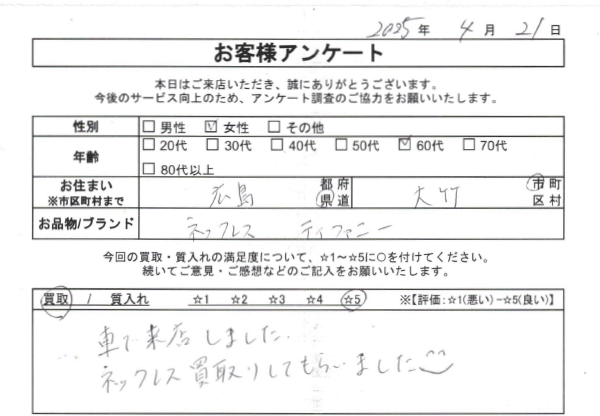 2025年 4月 21日
お客様アンケート
本日はご来店いただき、誠にありがとうございます。
今後のサービス向上のため、アンケート調査のご協力をお願いいたします。
性別 □ 男性 ☑ 女性 □ その他
年齢 □ 20代 □ 30代 □ 40代 □ 50代 ☑ 60代 □ 70代
□ 80代以上
お住まい 広島 都府 大竹 市町
※市区町村まで 県道 区村
お品物/ブランド ネックレス ティファニー
今回の買取・質入れの満足度について、☆1～☆5に○を付けてください。
続いてご意見・ご感想などのご記入をお願いいたします。
買取 / 質入れ ☆1 ☆2 ☆3 ☆4 ☆5 ※【評価:☆1(悪い)-☆5(良い)】
車で来店しました.
ネックレス買取りしてもらいました